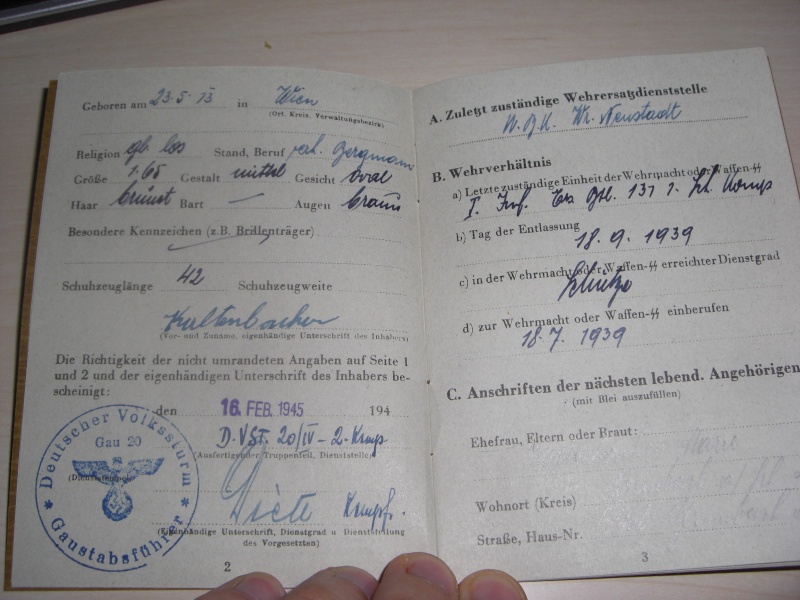 Geboren am 23.5.13 in Wien
(Ort, Kreis, Verwaltungsbezirk)
Religion gb. los Stand, Beruf verh. Bergmann
Größe 1.65 Gestalt mittel Gesicht oval
Haar brünet Bart — Augen braun
Besondere Kennzeichen (z.B. Brillenträger)
Schuhzeuglänge 42 Schuhzeugweite
Kaltenbacher
(Vor- und Zuname, eigenhändige Unterschrift des Inhabers)
Die Richtigkeit der nicht umrandeten Angaben auf Seite 1
und 2 und der eigenhändigen Unterschrift des Inhabers be-
scheinigt:
den 16. FEB. 1945 194
D.VST. 20/IV - 2. Komp
(Ausfertigender Truppenteil, Dienststelle)
(Dienststempel)
Kompf.
(Eigenhändige Unterschrift, Dienstgrad u. Dienststellung
des Vorgesetzten)
Deutscher Volkssturm
Gau 20
Gaustabsführer
2
A. Zuletzt zuständige Wehrersatzdienststelle
W.B.K. Wr. Neustadt
B. Wehrverhältnis
a) Letzte zuständige Einheit der Wehrmacht oder Waffen-SS
I. Inf. Ers. Btl. 131 Komp
b) Tag der Entlassung
18. 9. 1939
c) in der Wehrmacht oder Waffen-SS erreichter Dienstgrad
Schütze
d) zur Wehrmacht oder Waffen-SS einberufen
18. 7. 1939
C. Anschriften der nächsten lebend. Angehörigen
(mit Blei auszufüllen)
Ehefrau, Eltern oder Braut:
Marie
Wohnort (Kreis)
Straße, Haus-Nr.
3